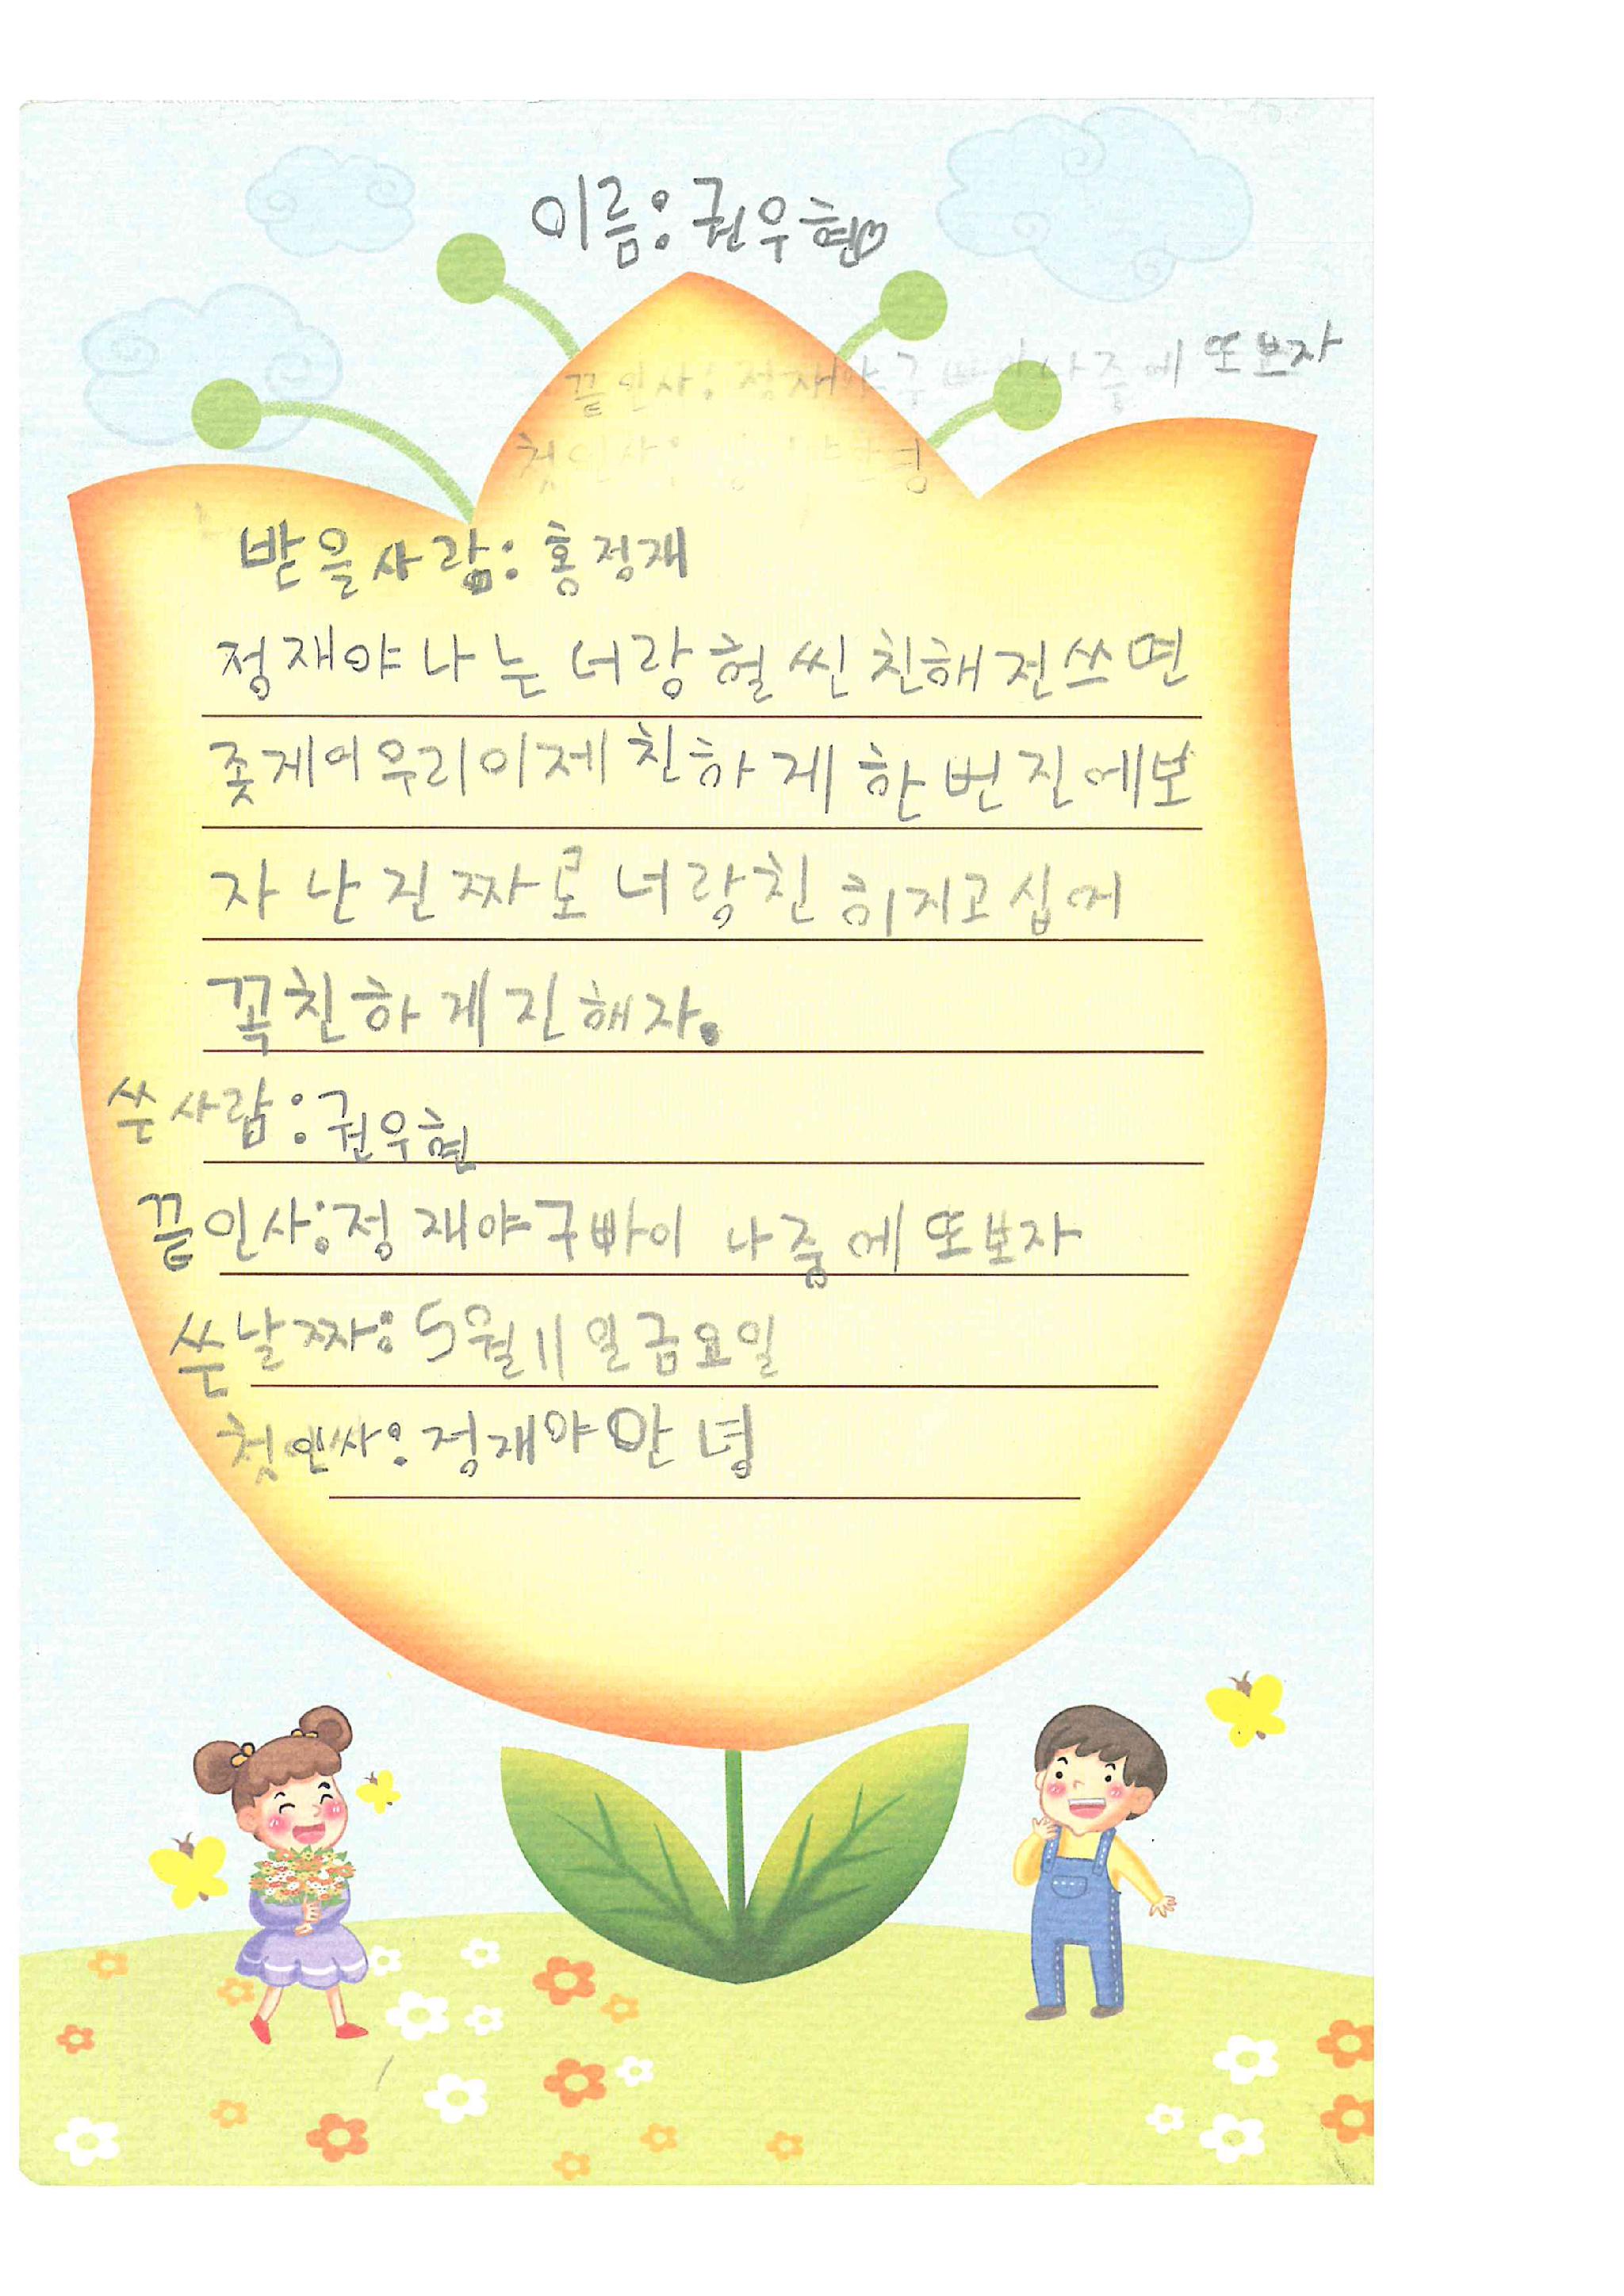 이름:권우현♡
끝인사:정재야구빠이나중에 또보자
첫인사: 안녕
받을사람:홍정재
정재야나는너랑훨씬친해진쓰면
좋게어우리이제친하게한번진에보
자난진짜로너랑친히지고십어
꼭친하게진해자.
쓴사람:권우현
끝인사:정재야구빠이 나중에또보자
쓴날짜:5월11일금요일
첫인사:정재야안녕